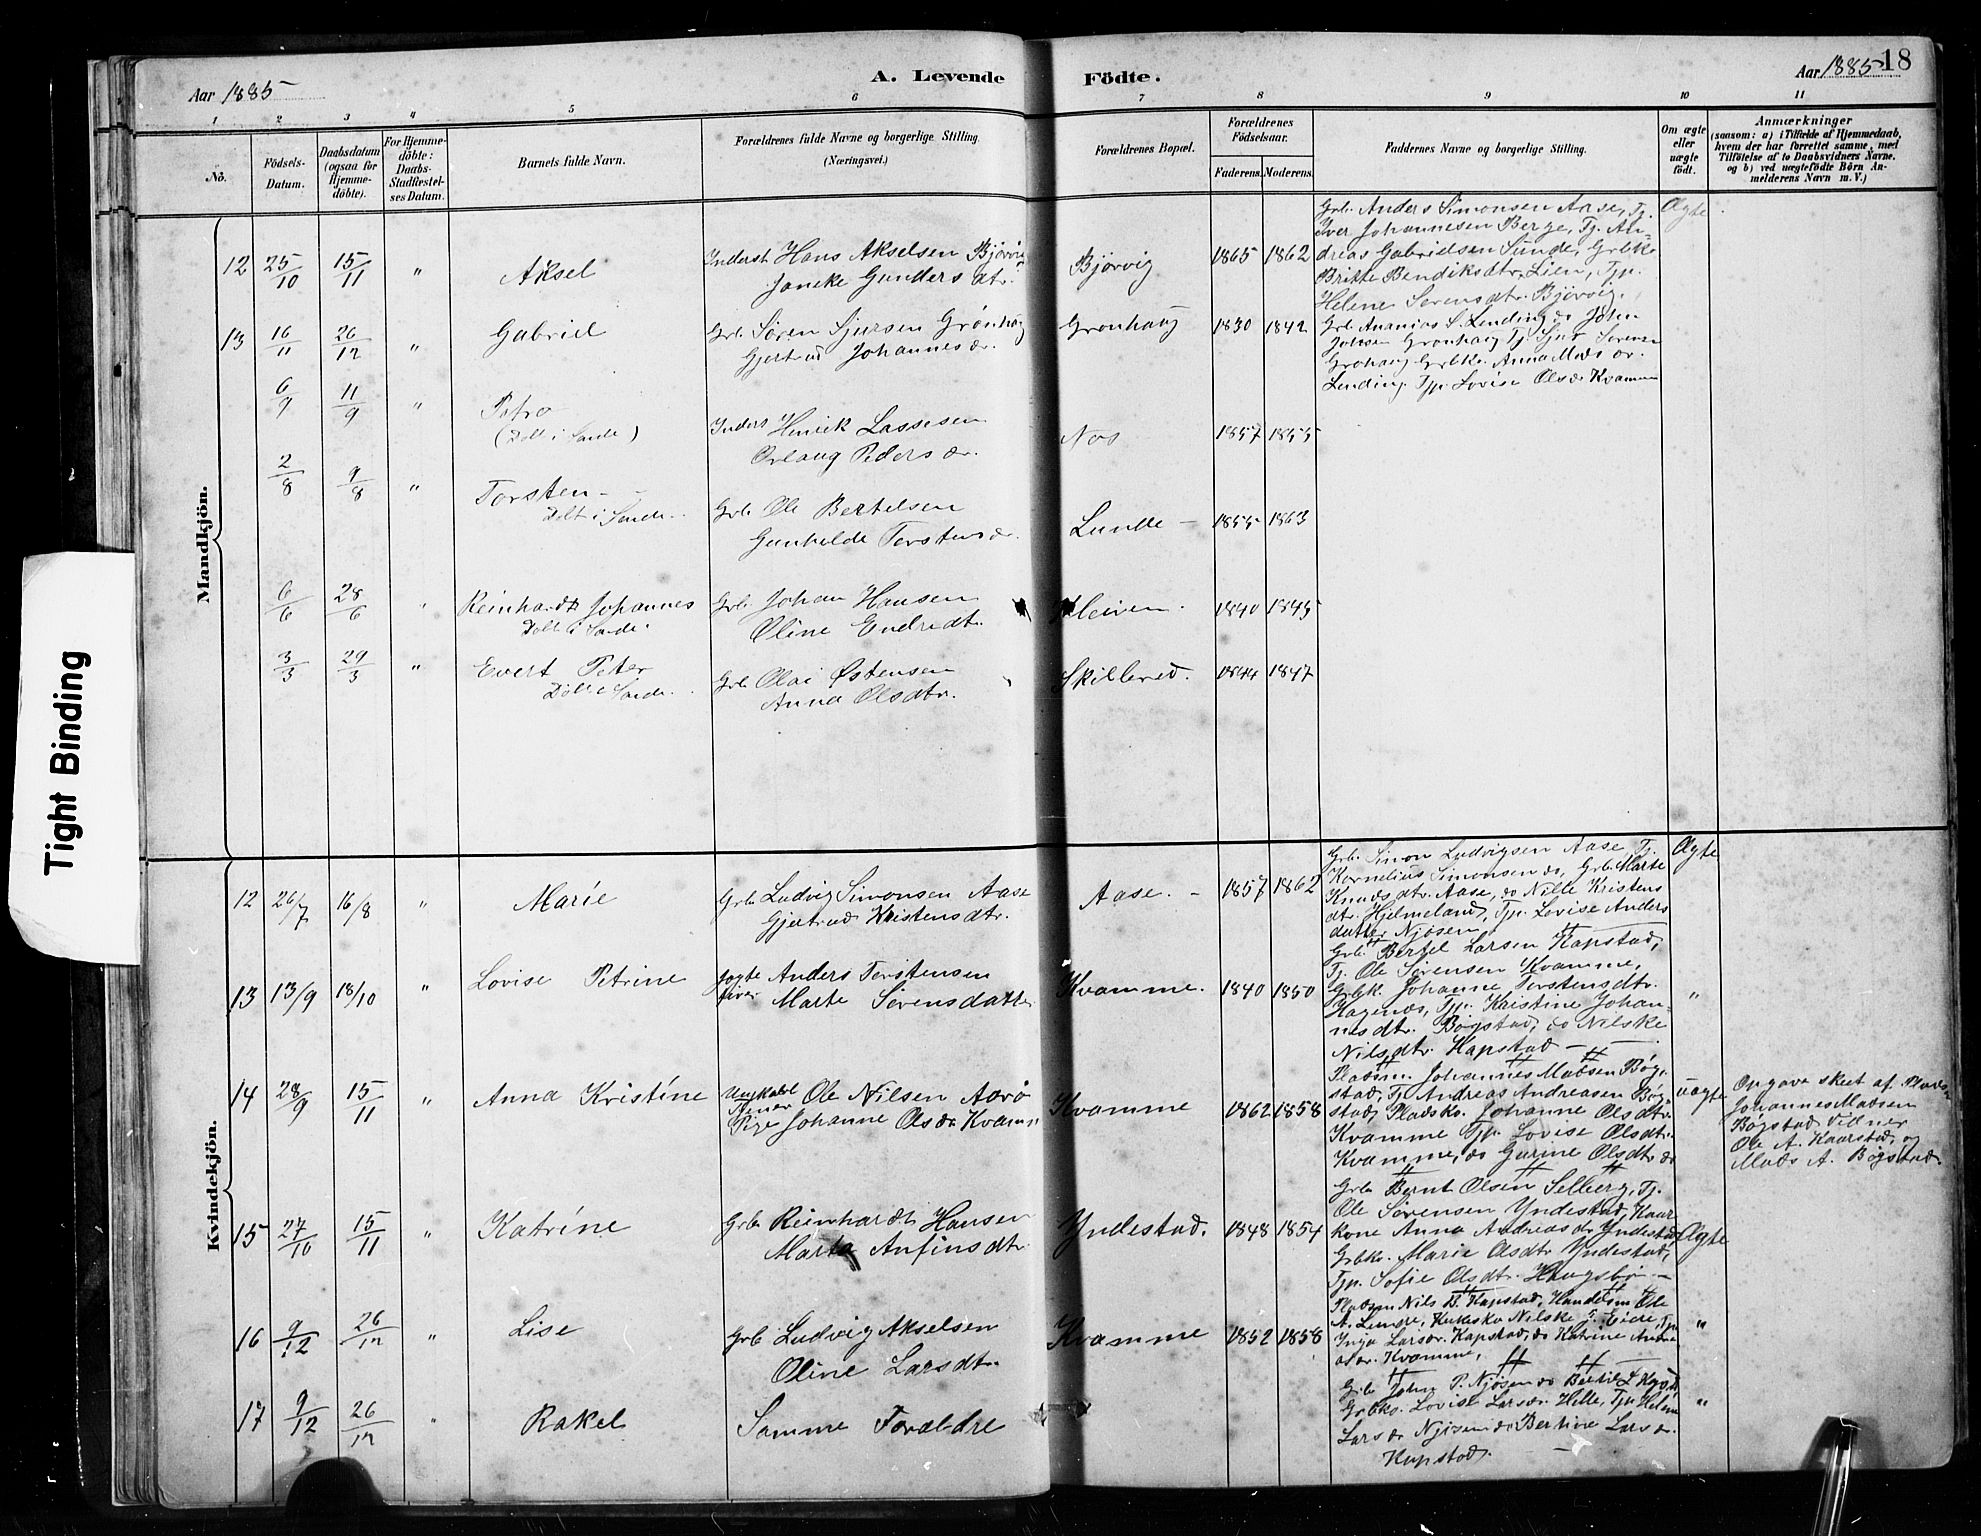 Aar 1885
A. Levende Födte.
Aar 1885
18
1 2 3 4 5 6 7 8 9 10 11
No.
Födsels-Datum.
Daabsdatum (ogsaa for Hjemme-döbte).
For Hjemme-döbte: Daabs-Stadfæstel-ses Datum.
Barnets fulde Navn.
Forældrenes fulde Navne og borgerlige Stilling. (Næringsvei.)
Forældrenes Bopæl.
Forældrenes Födselsaar.
Faderens. Moderens.
Faddernes Navne og borgerlige Stilling.
Om ægte eller uægte födt.
Anmærkninger
(saasom: a) i Tilfælde af Hjemmedaab,
hvem der har forrettet samme, med
Tilföielse af to Daabsvidners Navne.
og b) ved uægtefödte Börn An-
melderens Navn m. V.)
Mandkjön.
12 25/10 15/11 " Aksel
Inderst Hans Akselsen Bjørvig
Janike Gunders dtr.
Bjørvig 1865 1862
Grb. Anders Simonsen Aase, Tj.
Iver Johannesen Berge, Tj. An-
dreas Gabrielsen Sunde, Grbko
Britte Bendiksdtr. Lien, Tjp.
Helene Sørensdtr. Bjørvig.
Ægte
13 16/11 26/12 " Gabriel
Grb. Søren Sjursen Grønhaug
Gjertrud Johannesdr.
Grønhaug 1830 1842
Grb. Ananias S. Lending do John
Johnsen Grønhaug Tj. Sjur Sørensen
Grøhaug Grbko. Anna Mads dr.
Lending. Tjp. Lovise Olsdr Kvamme
6/9 11/9 " Petra
(Døbt i Sande)
Inderst Henrik Lassesen
Orlaug Peders dr.
Nos 1857 1855
2/8 9/8 " Torsten
Døbt i Sande.
Grb. Ole Bertelsen
Gunhilde Torstensdr.
Lunde 1855 1863
6/6 28/6 " Reinhardt Johannes
Døbt i Sande.
Grb. Johan Hansen
Oline Endredtr.
Kleiven. 1840 1845
3/3 29/3 " Evert Peter
Døbt i Sande.
Grb. Olai Østensen
Anna Olsdtr.
Skillered. 1844 1847
Kvindekjön.
12 26/7 16/8 " Marie
Grb Ludvig Simonsen Aase
Gjertrud Kristensdtr.
Aase. 1857 1862
Grb. Simon Ludvigsen Aase Tj.
Kornelius Simonsen do, Grb. Marte
Knudsdtr. Aase, do Nille Kristens
dtr. Hjelmeland, Tjp. Lovise Anders
datter Njøsen
Ægte
13 13/9 18/10 " Lovise Petrine
Anders Torstensen
Marte Sørensdatter
Kvamme. 1840 1850
Grb. Bertel Larsen Kapstad,
Tj. Ole Sørensen Kvamme,
Grbk. Johanne Torstensdtr.
Hagenæs, Tjp. Kristine Johan-
nesdtr. Bøgstad, do Nilske
Nilsdtr. Kapstad
"
14 28/9 15/11 " Anna Kristine
Ungkarl Ole Nilsen Aarø
Pige Johanne Olsdr Kvamme
Kvamme 1862 1858
Pladsm. Johannes Madsen Bøg-
stad, Tj Andreas Andreasen Bøg
stad, Pladsko. Johanne Olsdtr.
Kvamme Tjp. Lovise Olsdtr.
Kvamme, do Gurine Olsdtr do
uægte
Opgave skeet af Plads.
Johannes Madsen
Bøgstad Vidner
Ole A. Kaarstad og
Mads A. Bøgstad.
15 27/10 15/11 " Katrine
Grb Reinhardt Hansen
Marta Anfinsdtr.
Yndestad. 1848 1854
Grb Bernt Olsen Selberg, Tj.
Ole Sørensen Yndestad, Kaar
kone Anna Andreasdr Yndestad
Grbko. Marie Olsdtr Yndestad,
Tjp. Sofie Olsdtr. Haugsbø
Ægte
16 9/12 26/12 " Lise
Grb Ludvig Akselsen
Oline Larsdtr.
Kvamme 1852 1858
Pladsm Nils B. Kapstad, Handelsm Ole
A. Lunde, Nilske J. Eide, Tjp
Inga Larsdr. Kapstad, do Katrine
Kvamme,
"
17 9/12 26/12 " Rakel
Samme Forældre
Grb John P. Njøsen do Bertil L
Grbko. Lovise Larsdr Helle, Tjp. Helene
Lars dr Njøsen do Bertine Lars dr.
Kapstad.
"
Tight Binding